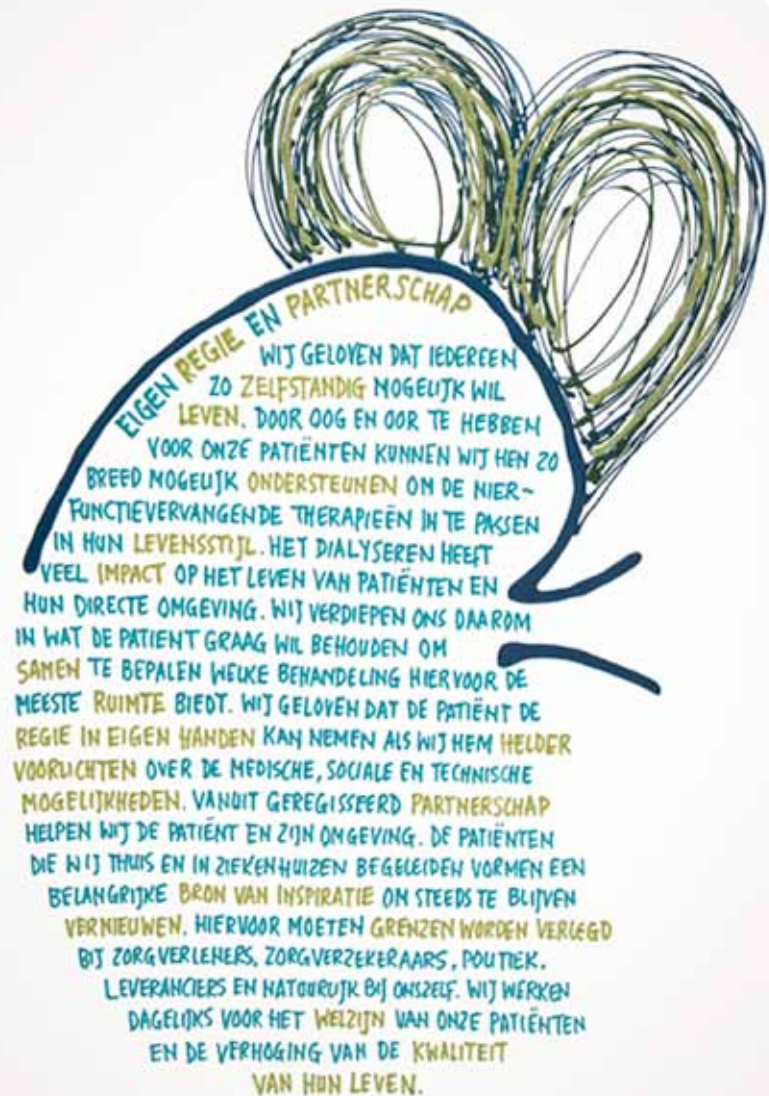 EIGEN REGIE EN PARTNERSCHAP
WIJ GELOVEN DAT IEDEREEN
ZO ZELFSTANDIG MOGELIJK WIL
LEVEN. DOOR OOG EN OOR TE HEBBEN
VOOR ONZE PATIËNTEN KUNNEN WIJ HEN ZO
BREED MOGELIJK ONDERSTEUNEN OM DE NIER-
FUNCTIEVERVANGENDE THERAPIEËN IN TE PASSEN
IN HUN LEVENSSTIJL. HET DIALYSEREN HEEFT
VEEL IMPACT OP HET LEVEN VAN PATIËNTEN EN
HUN DIRECTE OMGEVING. WIJ VERDIEPEN ONS DAAROM
IN WAT DE PATIENT GRAAG WIL BEHOUDEN OM
SAMEN TE BEPALEN WELKE BEHANDELING HIERVOOR DE
MEESTE RUIMTE BIEDT. WIJ GELOVEN DAT DE PATIËNT DE
REGIE IN EIGEN HANDEN KAN NEMEN ALS WIJ HEM HELDER
VOORLICHTEN OVER DE MEDISCHE, SOCIALE EN TECHNISCHE
MOGELIJKHEDEN. VANUIT GEREGISSEERD PARTNERSCHAP
HELPEN WIJ DE PATIËNT EN ZIJN OMGEVING. DE PATIËNTEN
DIE WIJ THUIS EN IN ZIEKENHUIZEN BEGELEIDEN VORMEN EEN
BELANGRIJKE BRON VAN INSPIRATIE OM STEEDS TE BLIJVEN
VERNIEUWEN. HIERVOOR MOETEN GRENZEN WORDEN VERLEGD
BIJ ZORGVERLENERS, ZORGVERZEKERAARS, POLITIEK,
LEVERANCIERS EN NATUURLIJK BIJ ONSZELF. WIJ WERKEN
DAGELIJKS VOOR HET WELZIJN VAN ONZE PATIËNTEN
EN DE VERHOGING VAN DE KWALITEIT
VAN HUN LEVEN.